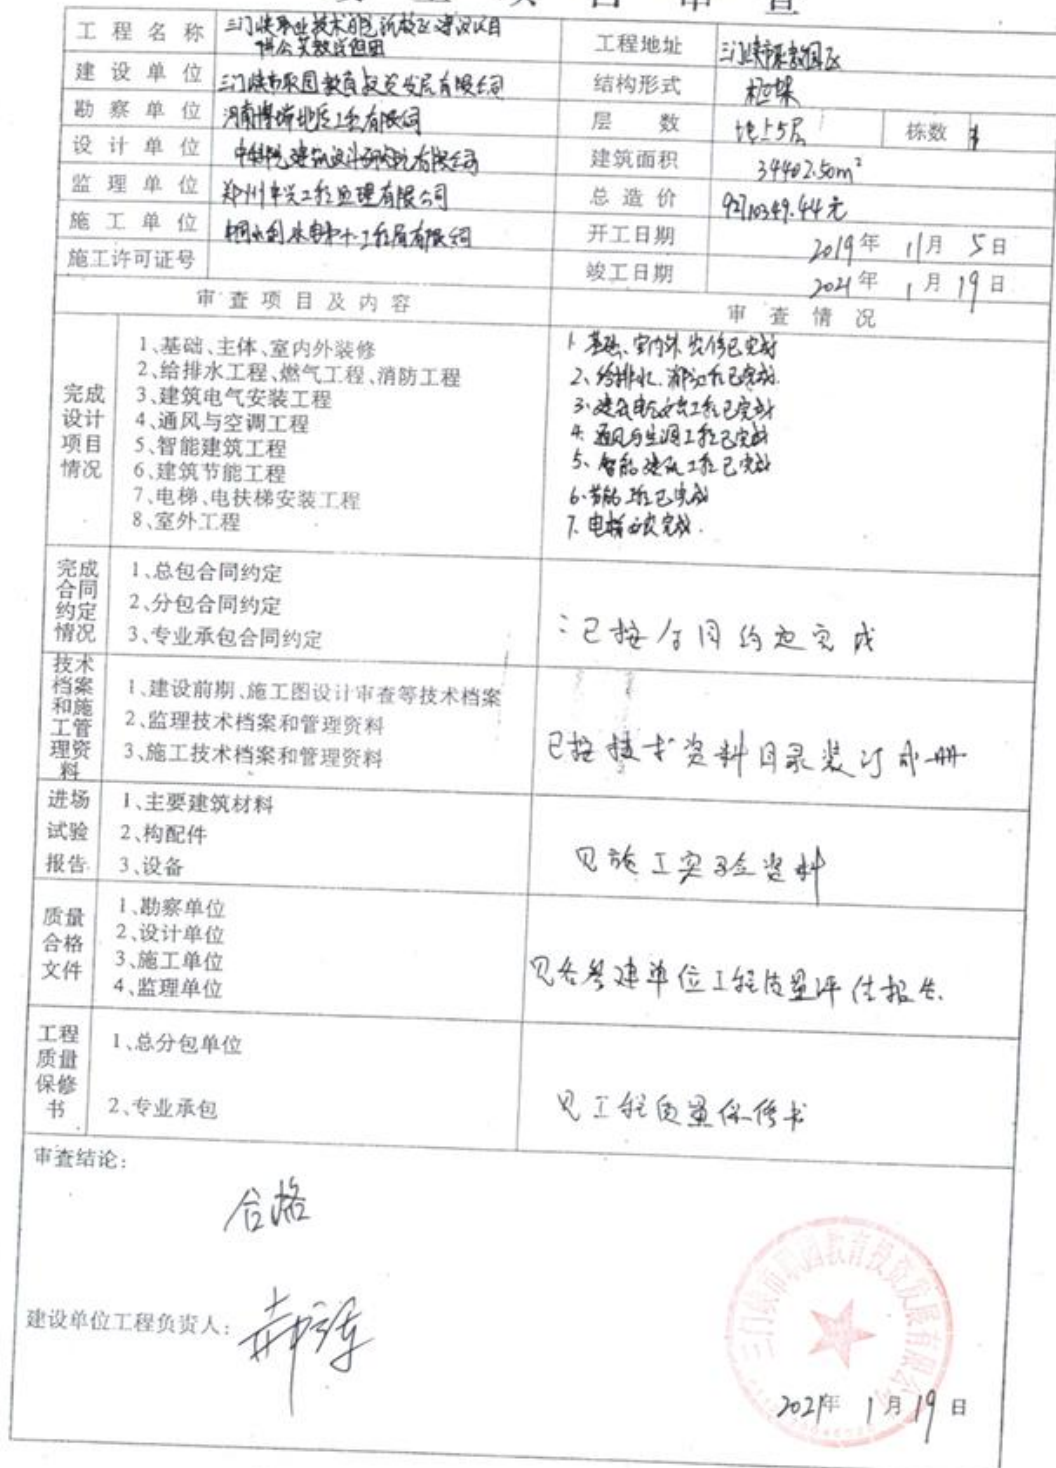 项目审查
工程名称 三门峡职业技术学院新校区建设项目
公共教学组团
工程地址 三门峡市职教园区
建设单位 三门峡市职园教育投资发展有限公司
结构形式 框架
勘察单位 河南 工程有限公司
层数 地上5层 栋数
设计单位 中科院建筑设计研究院有限公司
建筑面积 34402.50m²
监理单位 郑州中兴工程监理有限公司
总造价 92710349.44元
施工单位 中国水利水电第十一工程局有限公司
开工日期 2019年11月5日
施工许可证号
竣工日期 2021年1月19日
审查项目及内容 审查情况
完成设计项目情况
1、基础、主体、室内外装修
2、给排水工程、燃气工程、消防工程
3、建筑电气安装工程
4、通风与空调工程
5、智能建筑工程
6、建筑节能工程
7、电梯、电扶梯安装工程
8、室外工程
1、基础、室内外装修已完成
2、给排水、消防工程已完成.
3、建筑电气安装工程已完成
4、通风与空调工程已完成
5、智能建筑工程已完成
6、节能工程已完成
7、电梯安装完成.
完成合同约定情况
1、总包合同约定
2、分包合同约定
3、专业承包合同约定
已按合同约定完成
技术档案和施工管理资料
1、建设前期、施工图设计审查等技术档案
2、监理技术档案和管理资料
3、施工技术档案和管理资料
已按技术资料目录装订成册
进场试验报告
1、主要建筑材料
2、构配件
3、设备
见施工实验资料
质量合格文件
1、勘察单位
2、设计单位
3、施工单位
4、监理单位
见各参建单位工程质量评估报告.
工程质量保修书
1、总分包单位
2、专业承包
见工程质量保修书
审查结论:
合格
建设单位工程负责人:
三门峡市职园教育投资发展有限公司
2021年1月19日